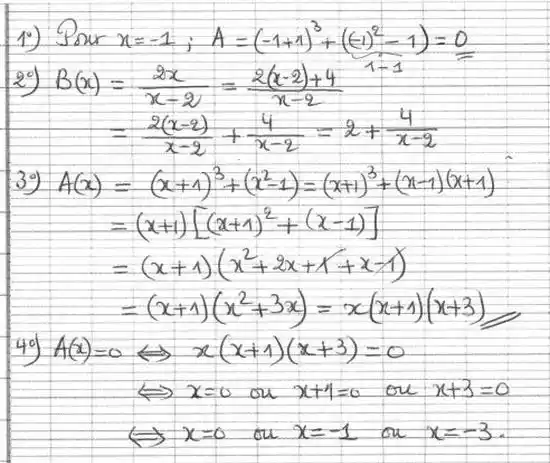 1°) Pour x=-1 ; A = (-1+1)³ + ((-1)² - 1) = 0
1-1
2°) B(x) = 2x/(x-2) = (2(x-2)+4)/(x-2)
= 2(x-2)/(x-2) + 4/(x-2) = 2 + 4/(x-2)
3°) A(x) = (x+1)³+(x²-1) = (x+1)³+(x-1)(x+1)
= (x+1)[(x+1)² + (x-1)]
= (x+1)(x²+2x+1+x-1)
= (x+1)(x²+3x) = x(x+1)(x+3)
4°) A(x)=0 ⇔ x(x+1)(x+3)=0
⇔ x=0 ou x+1=0 ou x+3=0
⇔ x=0 ou x=-1 ou x=-3.